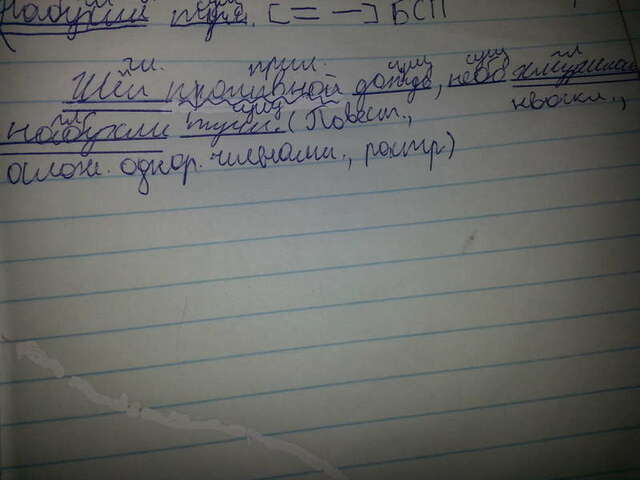 Набухли тучи. [= —] БСП
гл. прил. сущ сущ гл
Шёл проливной дождь, небо хмурилось
гл сущ
набухли тучи. (Повест., невоскл.,
ослож. однор. членами., распр)